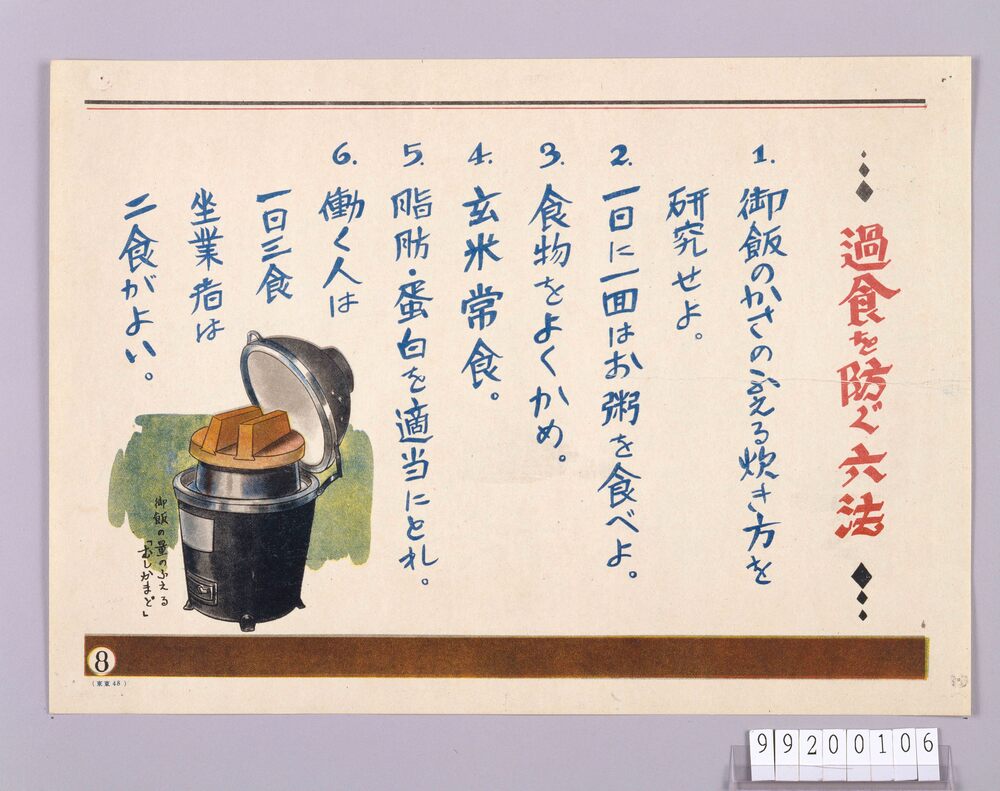 過食を防ぐ六法
1. 御飯のかさのふえる炊き方を
研究せよ。
2. 一日に一回はお粥を食べよ。
3. 食物をよくかめ。
4. 玄米常食。
5. 脂肪・蛋白を適当にとれ。
6. 働く人は
一日三食
坐業者は
二食がよい。
御飯の量のふえる
「おしかまど」
8
(東東48)
99200106